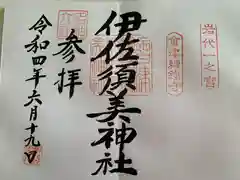 岩代一之宮
會津總鎮守
伊佐須美神社
参拝
令和四年六月十九日